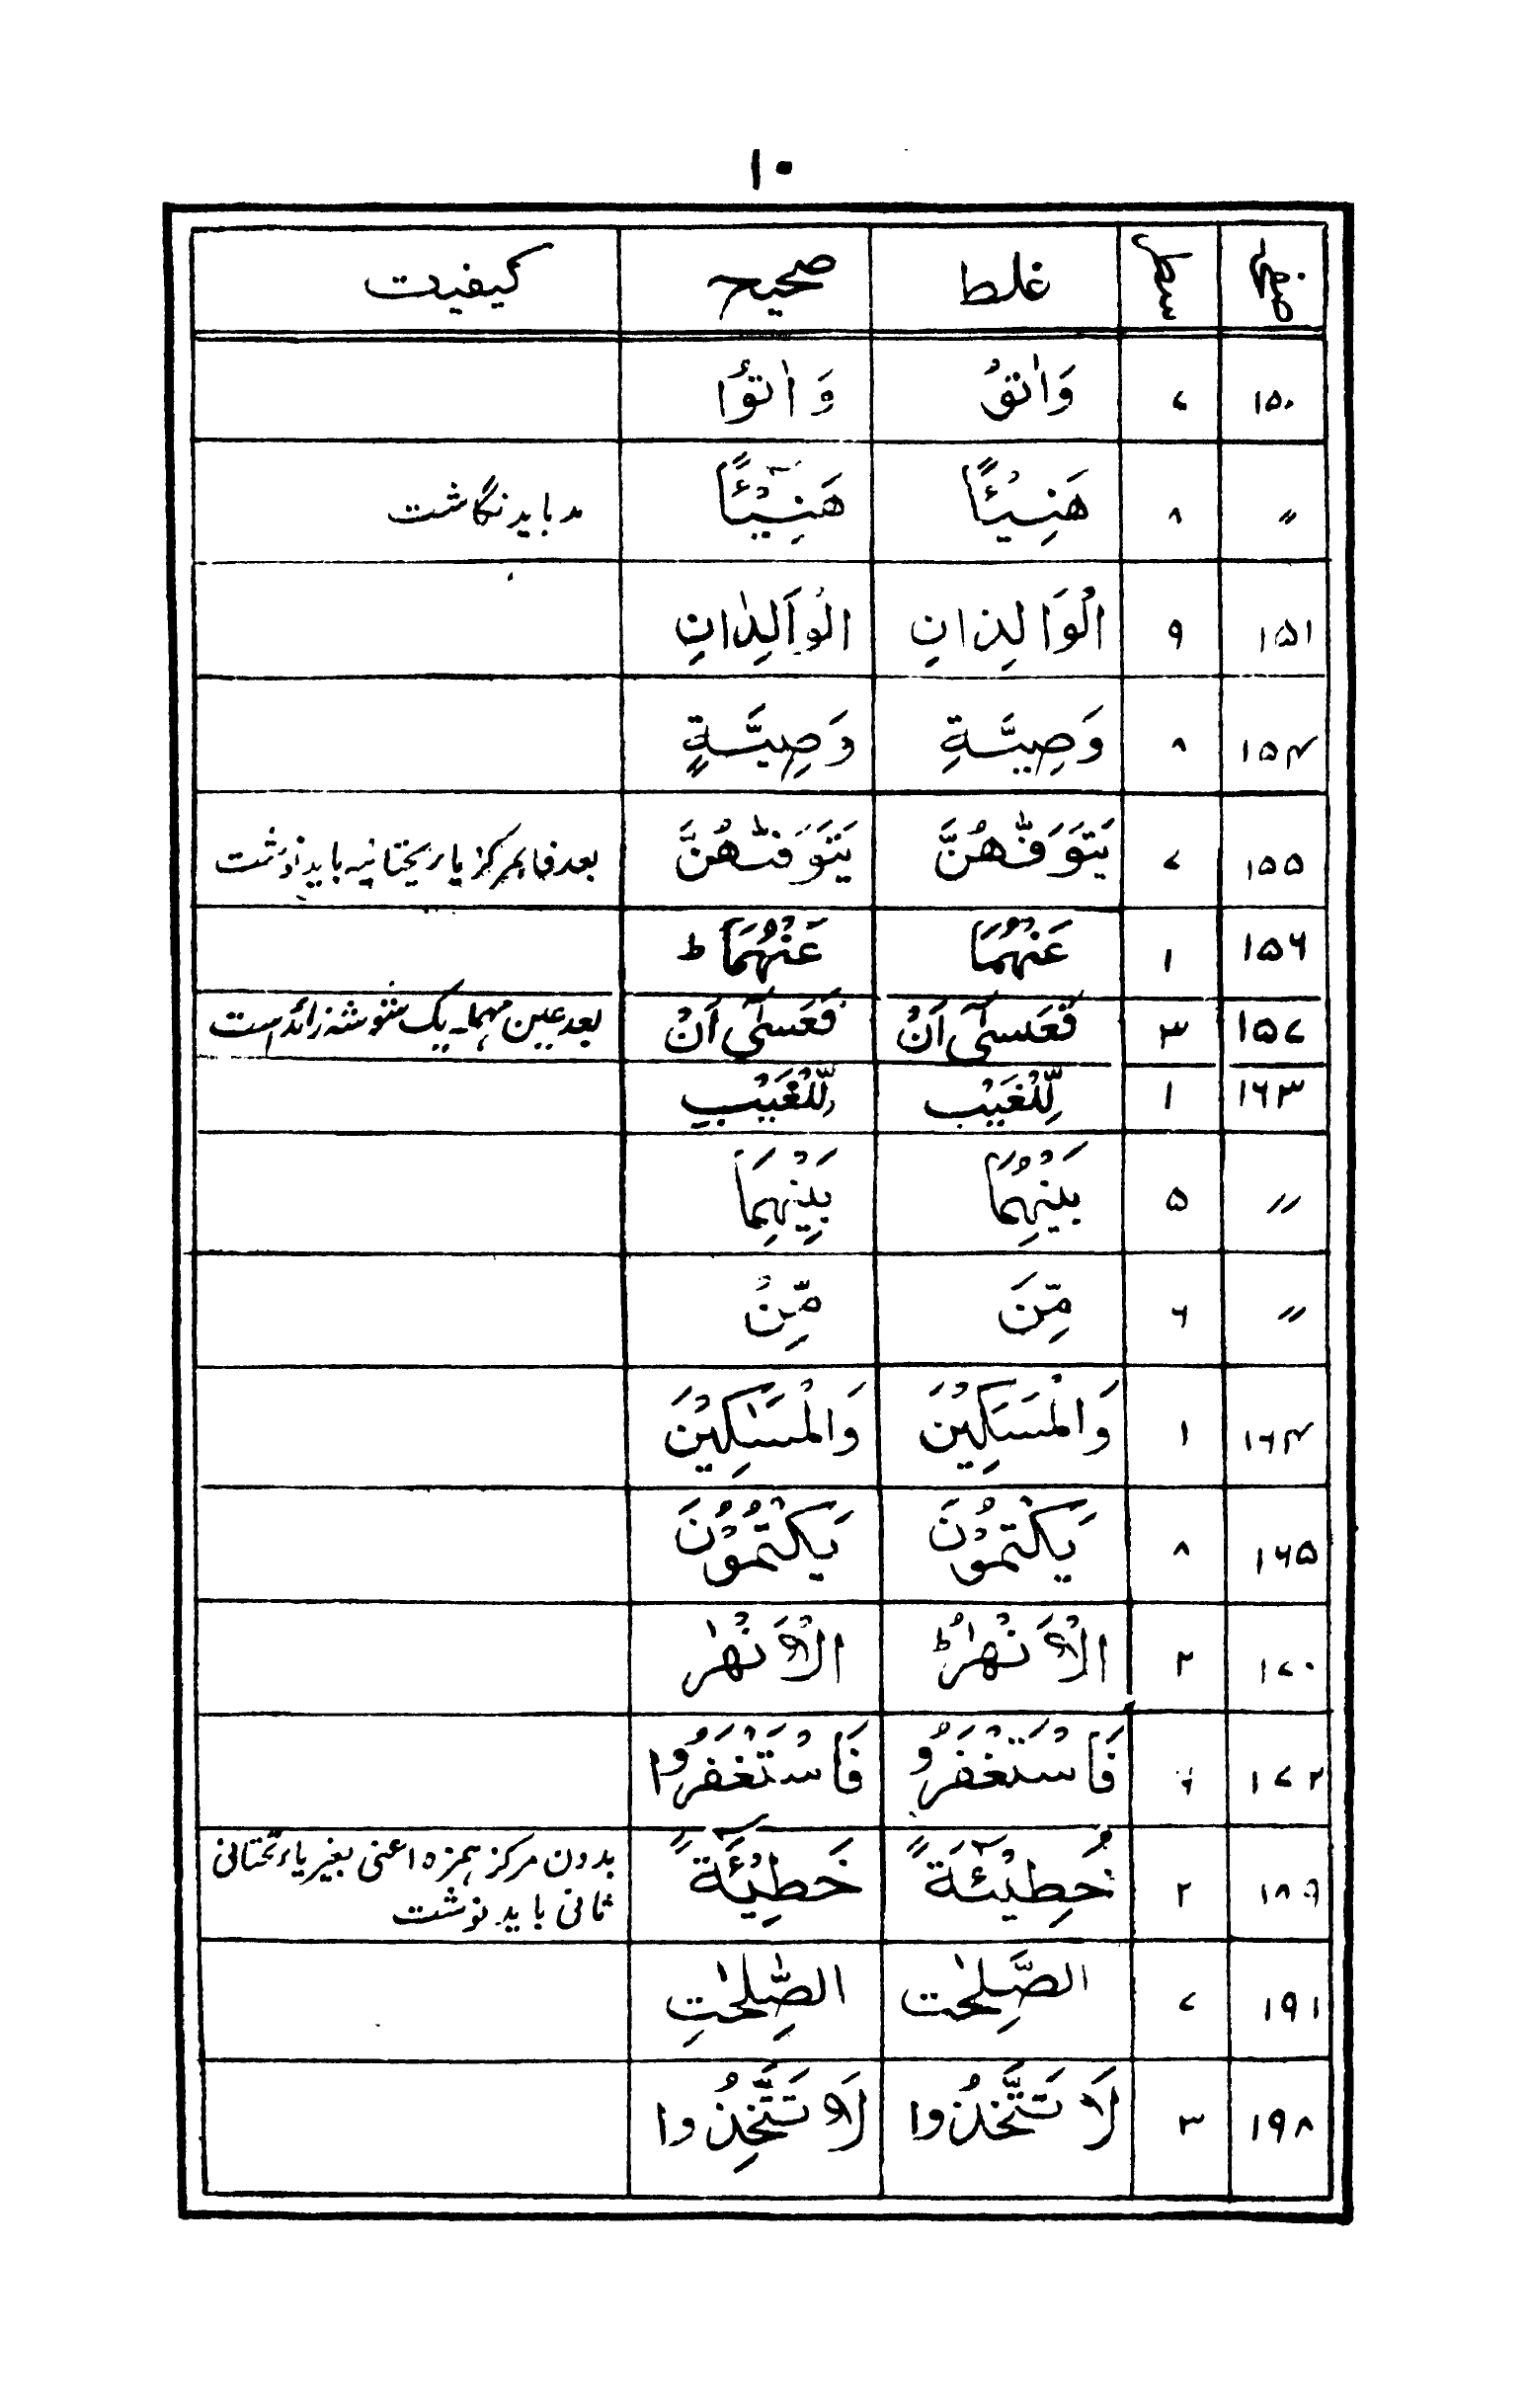 ۱۰
صفحہ سطر غلط صحیح کیفیت
۱۵۰ ۷ وَاٰتُو وَ اٰتُوا
〃 ۸ هَنِيْئًا هَنِيْٓئًا مد باید نگاشت
۱۵۱ ۹ الْوَالِدٰانِ الْوَالِدٰانِ
۱۵۴ ۸ وَصِيَّةِ وَصِيَّةٍ
۱۵۵ ۷ يَتَوَفّٰهُنَّ يَتَوَفّٰىهُنَّ بعد فا مرکز یاء تحتانیہ باید نوشت
۱۵۶ ۱ عَنْهُمَا عَنْهُمَا ط
۱۵۷ ۳ فَعَسٰٓى اَنْ فَعَسٰٓى اَنْ بعد عین مہملہ یک شوشہ زائد است
۱۶۳ ۱ لِّلْغَيْبِ لِّلْغَيْبِ
〃 ۵ بَيْنِهُمَا بَيْنِهِمَا
〃 ۶ مِّنَ مِّنْ
۱۶۴ ۱ وَالْمَسَكِيْنَ وَالْمَسٰكِيْنَ
۱۶۵ ۸ يَكْتمُوْنَ يَكْتُمُوْنَ
۱۷۰ ۲ الْاَنْهٰرُ ط الْاَنْهٰر
۱۷۲ ۶ فَاسْتَغْفَرُو فَاسْتَغْفَرُوا
۱۸۶ ۲ خُطِيْٓئَةً خَطِيْٓئَةً بدون مرکز ہمزہ اعنی بغیر یاء تحتانی
ثانی باید نوشت
۱۹۱ ۷ الصَّلِحٰت الصّٰلِحٰتِ
۱۹۸ ۳ لَا تَتَّخذُوا لَا تَتَّخِذُوا